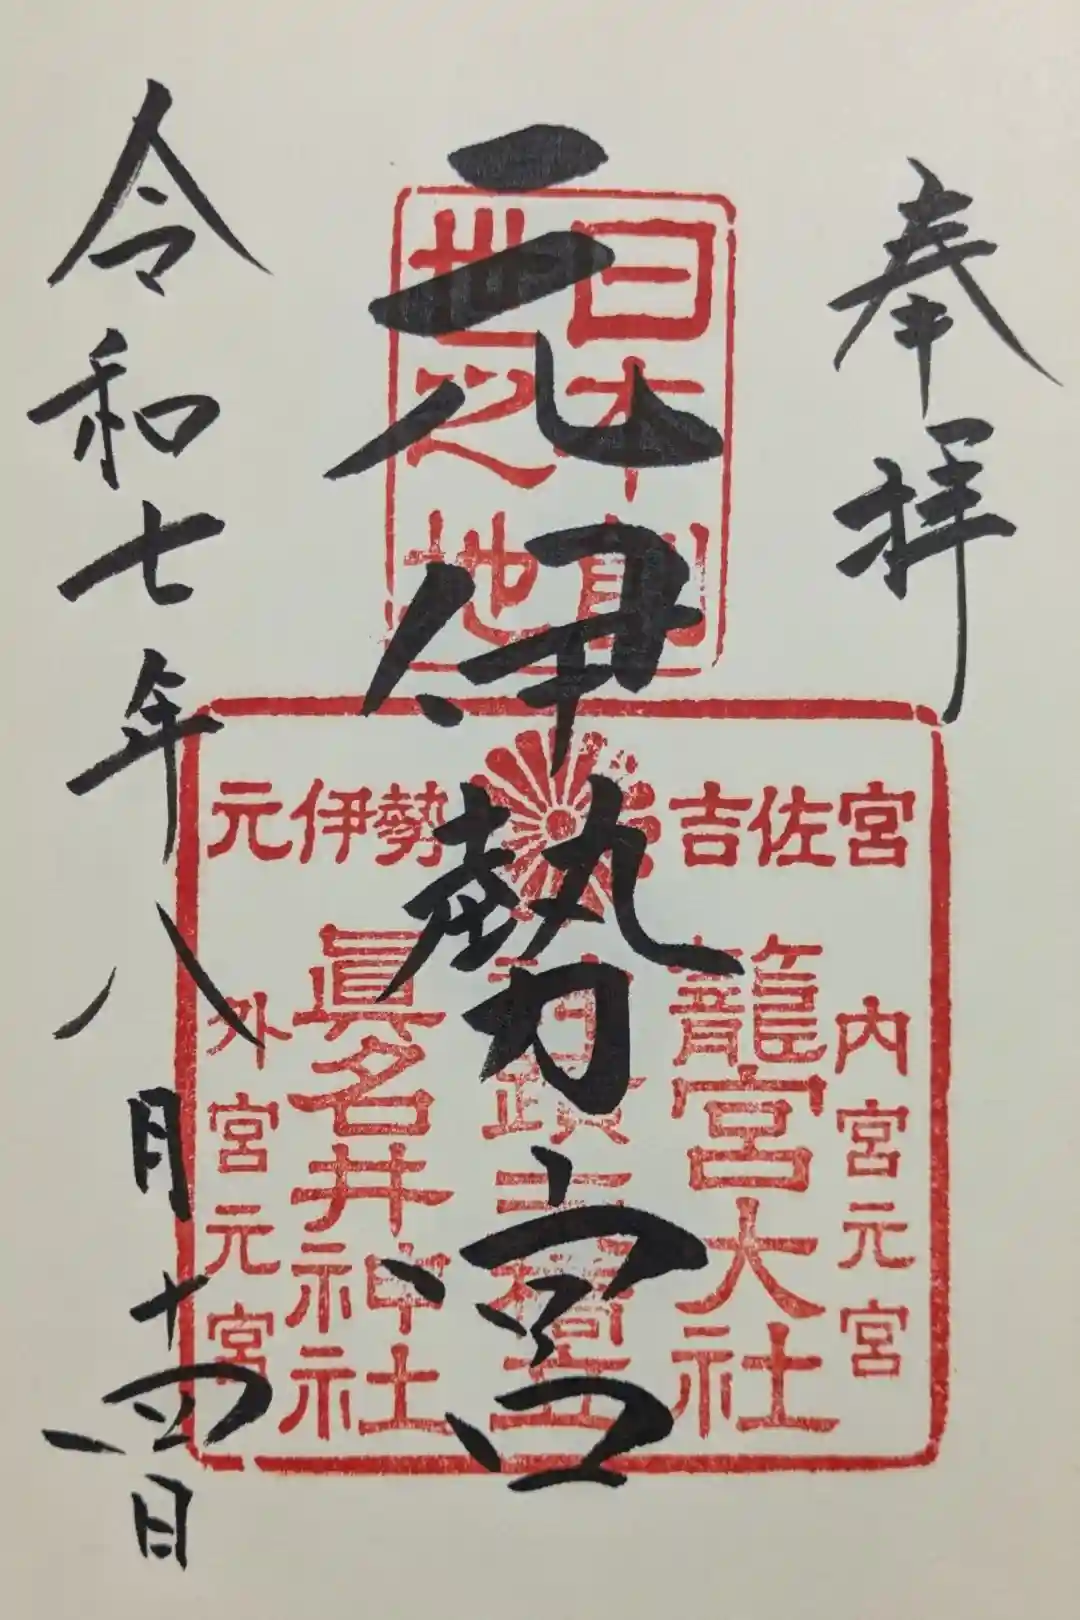 奉拝
元伊勢宮
令和七年八月十四日
日本
世之地
元伊勢 吉佐宮
内宮元宮
籠宮大社
眞名井神社
外宮元宮